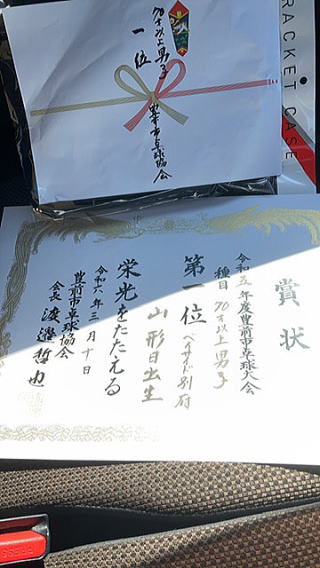 70才以上男子
一位
豊前市卓球協会
RACKET CASE
賞状
令和五年度豊前市卓球大会
種目 70才以上男子
第一位 ベイサイド別府
山形日出生
栄光をたたえる
令和六年三月十日
豊前市卓球協会
会長 渡邉哲也
PRESS